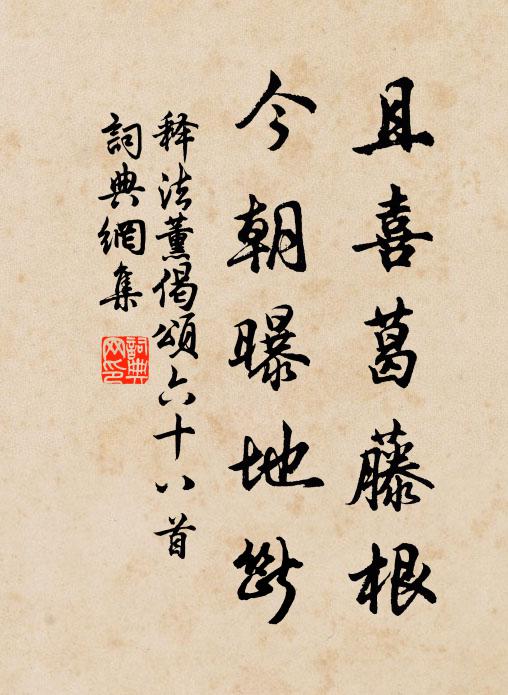 且喜葛藤根
今朝曝地断
释法薰偈颂六十八首
詞典網集
詞典网印